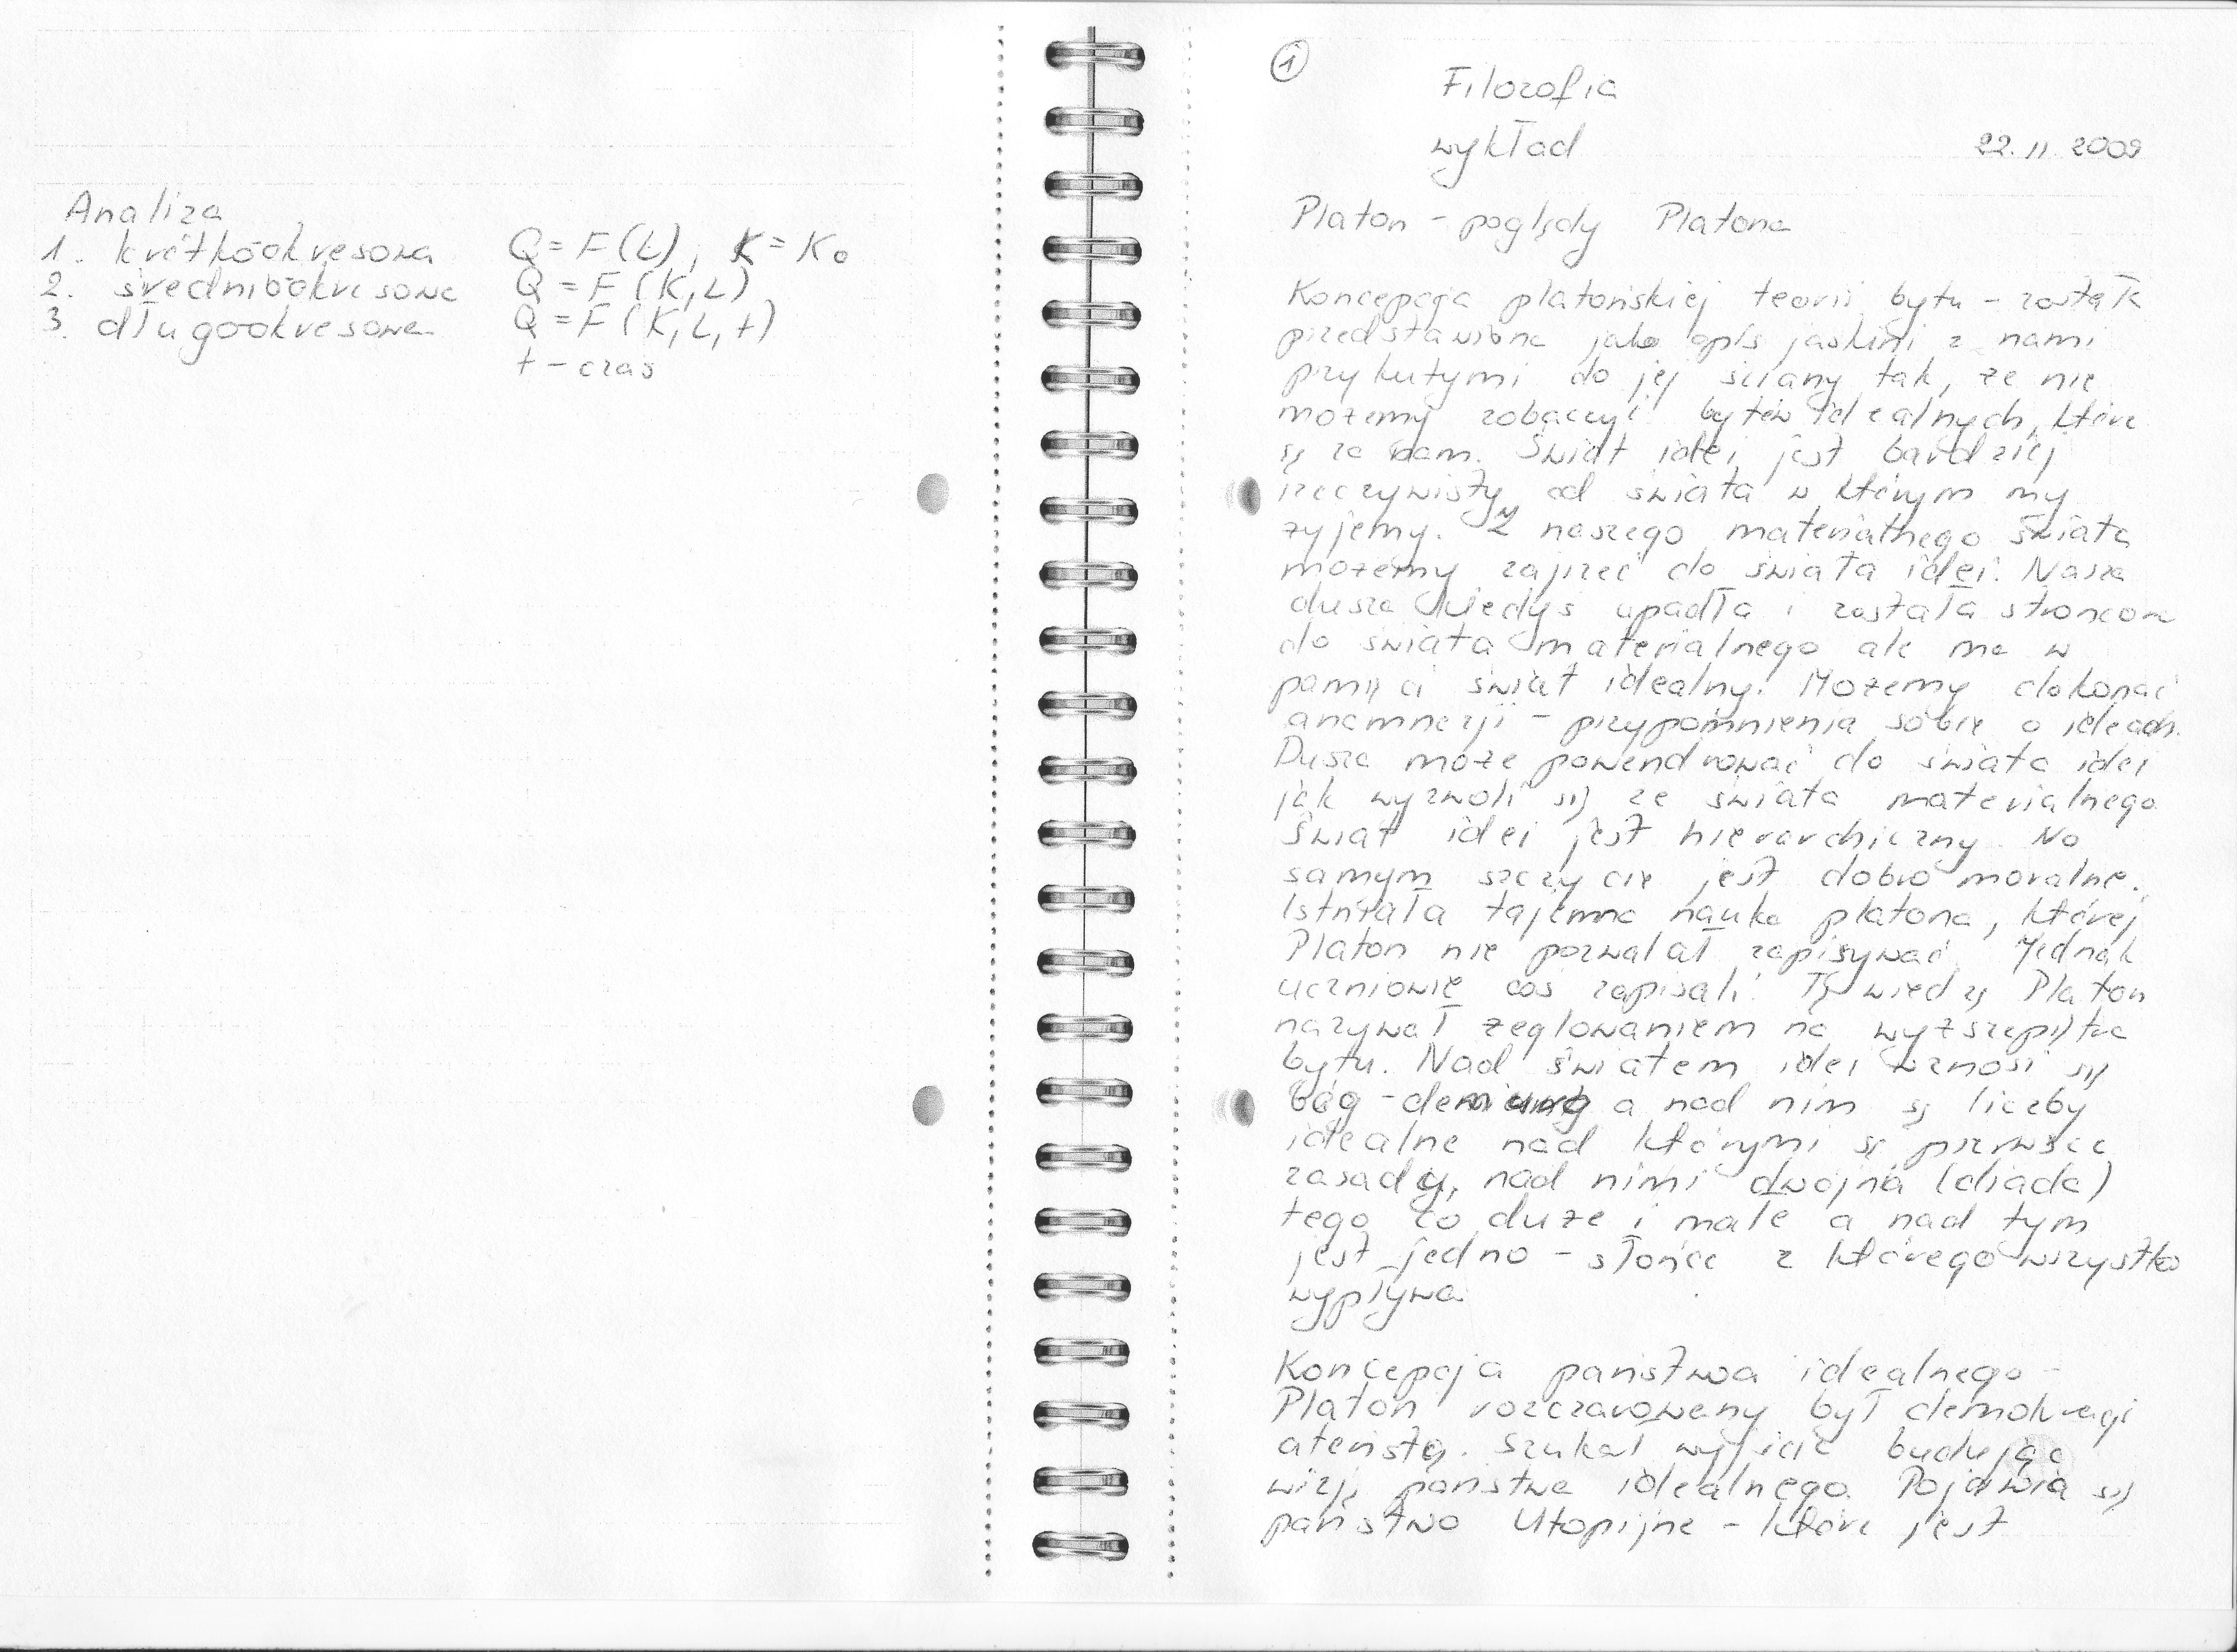 Analiza
1. krótkookresowa Q = F(L), K = K₀
2. średniookresowa Q = F(K, L)
3. długookresowa Q = F(K, L, t)
t - czas
①
Filozofia
wykład 22.11.2009
Platon - poglądy Platona
Koncepcja platońskiej teorii bytu - została
przedstawiona jako opis jaskini z nami
przykutymi do jej ściany tak, że nie
możemy zobaczyć bytów idealnych, które
są za nam. Świat idei jest bardziej
rzeczywisty od świata w którym my
żyjemy. Z naszego materialnego świata
możemy zajrzeć do świata idei. Nasza
dusza kiedyś upadła i została stroncona
do świata materialnego ale ma w
pamięci świat idealny. Możemy dokonać
anamnezji - przypomnienia sobie o ideach.
Dusza może powendrować do świata idei
jak wyzwoli się ze świata materialnego
Świat idei jest hierarchiczny. Na
samym szczycie jest dobro moralne.
Istniała tajemna nauka platona, której
Platon nie pozwalał zapisywać. Jednak
uczniowie coś zapisali. Tą wiedzę Platon
nazywał żeglowaniem na wyższe piętra
bytu. Nad światem idei wznosi się
bóg - demiurg a nad nim są liczby
idealne nad którymi są pierwsze
zasady, nad nimi dwójna (diada)
tego co duże i małe a nad tym
jest jedno - słońce z którego wszystko
wypływa.
Koncepcja państwa idealnego -
Platon rozczarowany był demokracją
ateńską. Szukał wyjścia budując
wizję państwa idealnego. Pojawia się
państwo Utopijne - które jest